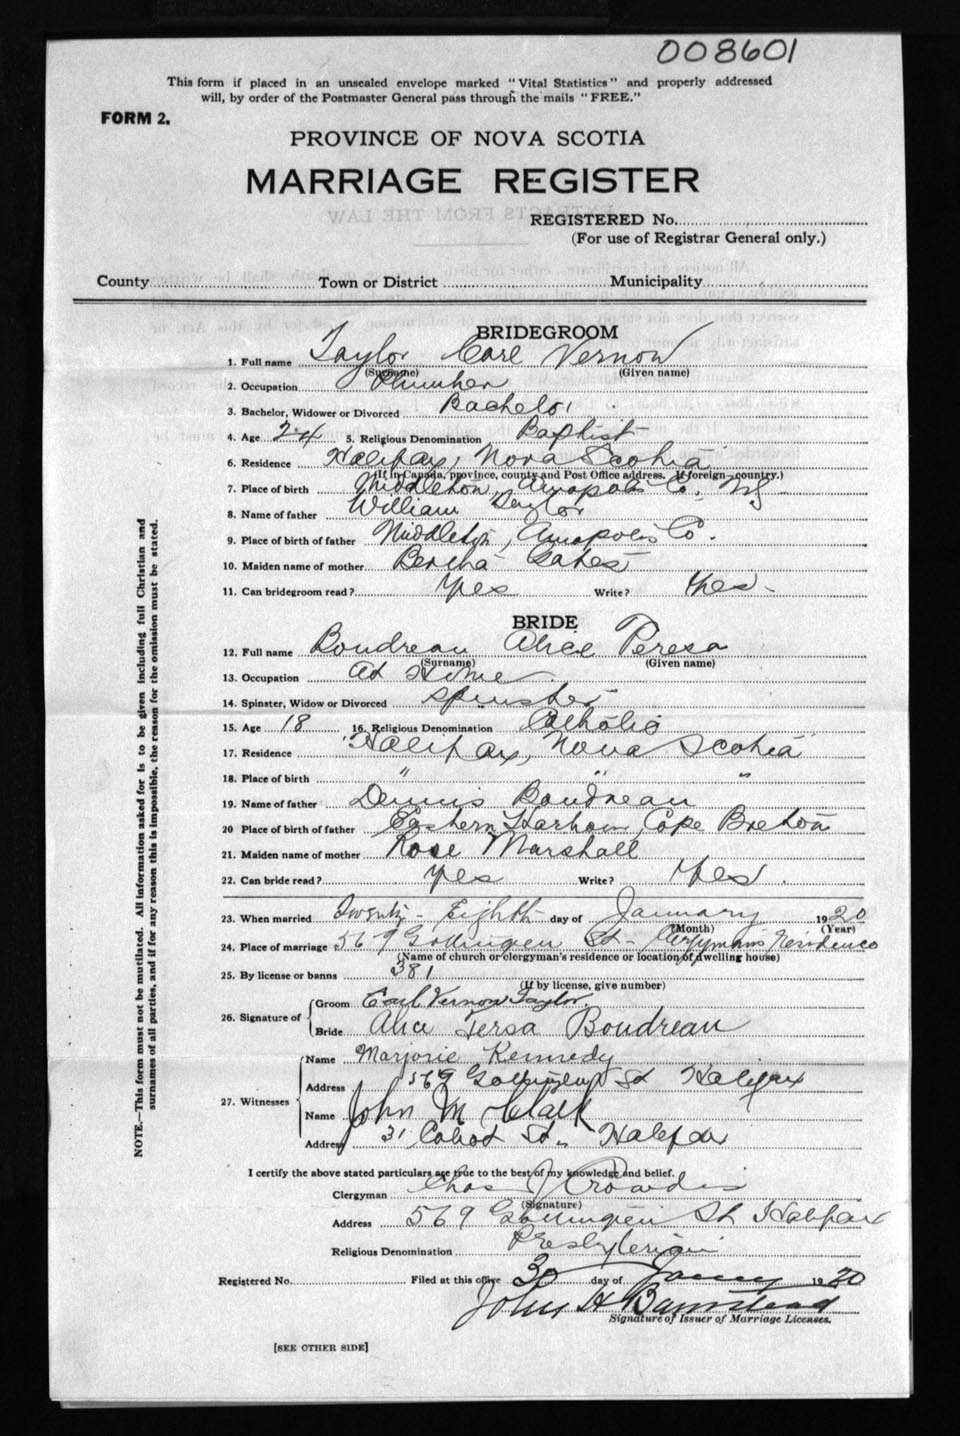 008601
This form if placed in an unsealed envelope marked "Vital Statistics" and properly addressed
will, by order of the Postmaster General pass through the mails "FREE."
FORM 2.
PROVINCE OF NOVA SCOTIA
MARRIAGE REGISTER
REGISTERED No.
(For use of Registrar General only.)
County Town or District Municipality
BRIDEGROOM
1. Full name Taylor Carl Vernon
(Surname) (Given name)
2. Occupation Plumber
3. Bachelor, Widower or Divorced Bachelor
4. Age 24 5. Religious Denomination Baptist
6. Residence Halifax, Nova Scotia
(If in Canada, province, county and Post Office address. If foreign—country.)
7. Place of birth Middleton, Annapolis Co. NS
8. Name of father William Taylor
9. Place of birth of father Middleton, Annapolis Co.
10. Maiden name of mother Bertha Gates
11. Can bridegroom read? Yes Write? Yes
BRIDE
12. Full name Boudreau Alice Teresa
(Surname) (Given name)
13. Occupation At Home
14. Spinster, Widow or Divorced Spinster
15. Age 18 16. Religious Denomination Catholic
17. Residence Halifax, Nova Scotia
18. Place of birth " " "
19. Name of father Dennis Boudreau
20 Place of birth of father Eastern Harbour, Cape Breton
21. Maiden name of mother Rose Marshall
22. Can bride read? Yes Write? Yes
23. When married Twenty-Eighth day of January 1920
(Month) (Year)
24. Place of marriage 569 Gottingen St - Clergyman's Residence
(Name of church or clergyman's residence or location of dwelling house)
25. By license or banns 381
(If by license, give number)
26. Signature of Groom Carl Vernon Taylor
Bride Alice Tersa Boudreau
27. Witnesses Name Marjorie Kennedy
Address 569 Gottingen St Halifax
Name John M Clark
Address 31 Cabot St. Halifax
I certify the above stated particulars are true to the best of my knowledge and belief.
Clergyman Chas J Crowdis
(Signature)
Address 569 Gottingen St Halifax
Religious Denomination Presbyterian
Registered No. Filed at this office 30 day of January 1920
John H Barnstead
Signature of Issuer of Marriage Licenses.
[SEE OTHER SIDE]
NOTE.—This form must not be mutilated. All information asked for is to be given including full Christian and
surnames of all parties, and if for any reason this is impossible, the reason for the omission must be stated.